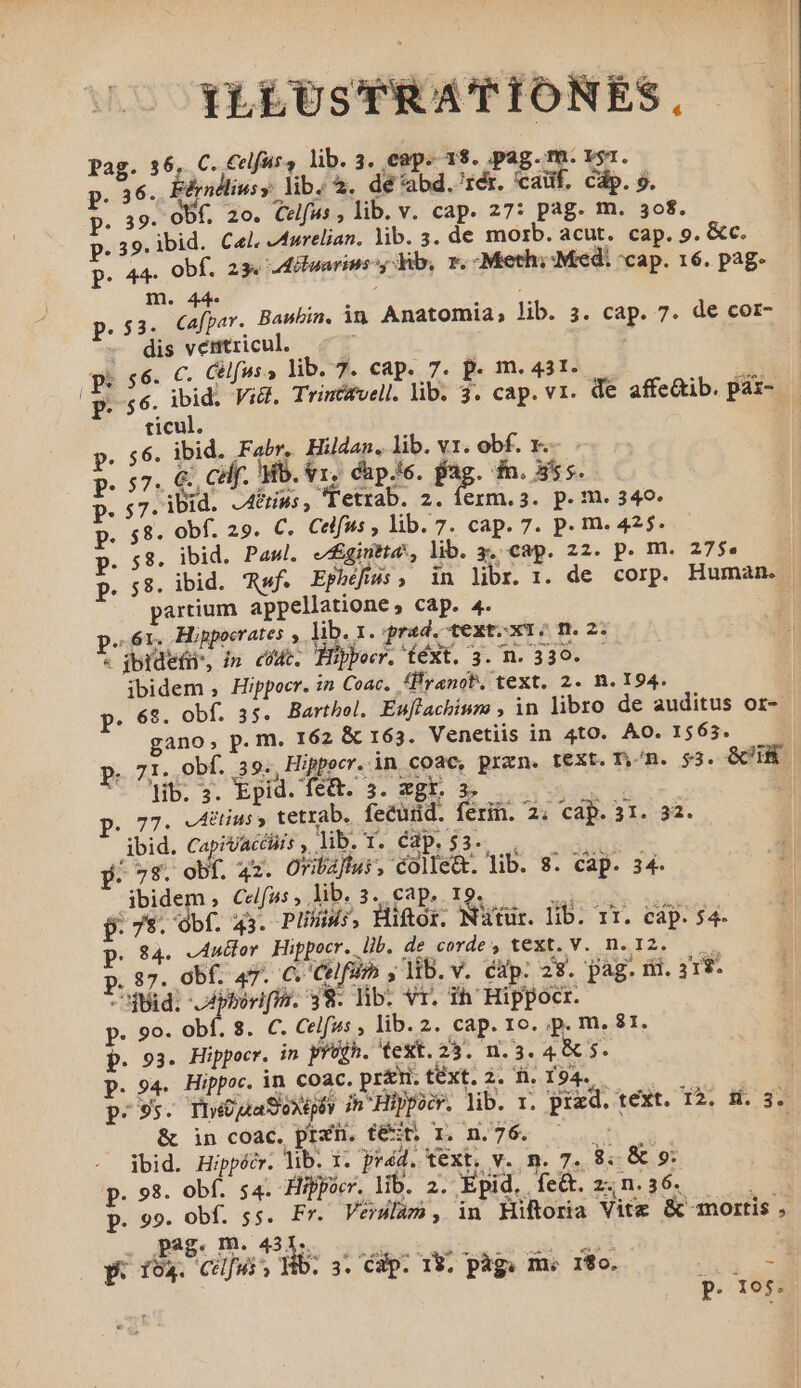 ILLUSTRATIONES.
Pag. 36. C. Celſus, lib. 3. cap. 18. pag. m. 151.
p. 36. Férnélius, lib. 2. de abd. rér. cauſ. cap. 9.
p. 39. obſ. 20. Celſus, lib. v. cap. 27: pag. m. 308.
p. 39. ibid. Cæl. Aurelian. lib. 3. de morb. acut. cap. 9. &c.
p. 44. obſ. 23. Actuarius, lib. 1. Meth. Med. cap. 16. pag.
m. 44.
p. 53. Caſpar. Bauhin. in Anatomia, lib. 3. cap. 7. de cor-
dis ventricul.
p. 56. C. Celſus, lib. 7. cap. 7. p. m. 431.
p. 56. ibid. Vict. Trincavell. lib. 3. cap. VI. de affectib. par-
ticul.
p. 56. ibid. Fabr. Hildan. lib. VI. obſ. 1.
p. 57. C. Celſ. lib. VI. cap. 6. pag. m. 355.
p. 57. ibid. Aëtius, Tetrab. 2. ſerm. 3. p. m. 340.
p. 58. obſ. 29. C. Celſus, lib. 7. cap. 7. p. m. 425.
p. 58. ibid. Paul. Ægineta, lib. 3. cap. 22. p. m. 275.
p. 58. ibid. Ruf. Epheſius, in libr. 1. de corp. Human.
partium appellatione, cap. 4.
p. 61. Hippocrates, lib. 1. præd. text. XI. n. 2.
ibidem, in coac. Hippocr. text. 3. n. 330.
ibidem, Hippocr. in Coac. text. 2. n. 194.
p. 68. obſ. 35. Barthol. Euſtachium, in libro de auditus or-
gano, p. m. 162 & 163. Venetiis in 4to. Ao. 1563.
p. 71. obſ. 39. Hippocr. in coac. præn. text. 1. n. 53. & in
lib. 3. Epid. ſect. 3. ægr. 3.
p. 77. Aëtius, tetrab. ſecund. ſerm. 2. cap. 31. 32.
ibid. Capivaccius, lib. 1. cap. 53.
p. 78. obſ. 42. Oribaſius, collect. lib. 8. cap. 34.
ibidem, Celſus, lib. 3. cap. 19.
p. 78. obſ. 43. Plinius, Hiſtor. Natur. lib. 11. cap. 54.
p. 84. Auctor Hippocr. lib. de corde, text. V. n. 12.
p. 87. obſ. 47. C. Celſum, lib. v. cap. 28. pag. m. 318.
ibid. Aphoriſm. 38. lib. VI. in Hippocr.
p. 90. obſ. 8. C. Celſus, lib. 2. cap. 10. p. m. 81.
p. 93. Hippocr. in progn. text. 23. n. 3. 4 & 5.
p. 94. Hippoc. in coac. præn. text. 2. n. 194.
p. 95. in Hippocr. lib. 1. præd. text. 12. n. 3.
& in coac. præn. text. 1. n. 76.
ibid. Hippócr. lib. 1. præd. text. v. n. 7. 8. & 9.
p. 98. obſ. 54. Hippocr. lib. 2. Epid. ſect. 2. n. 36.
p. 99. obſ. 55. Fr. Verulam, in Hiſtoria Vitæ & mortis,
pag. m. 431.
p. 104. Celſus, lib. 3. cap. 18. pag. m. 180.
p. 105.